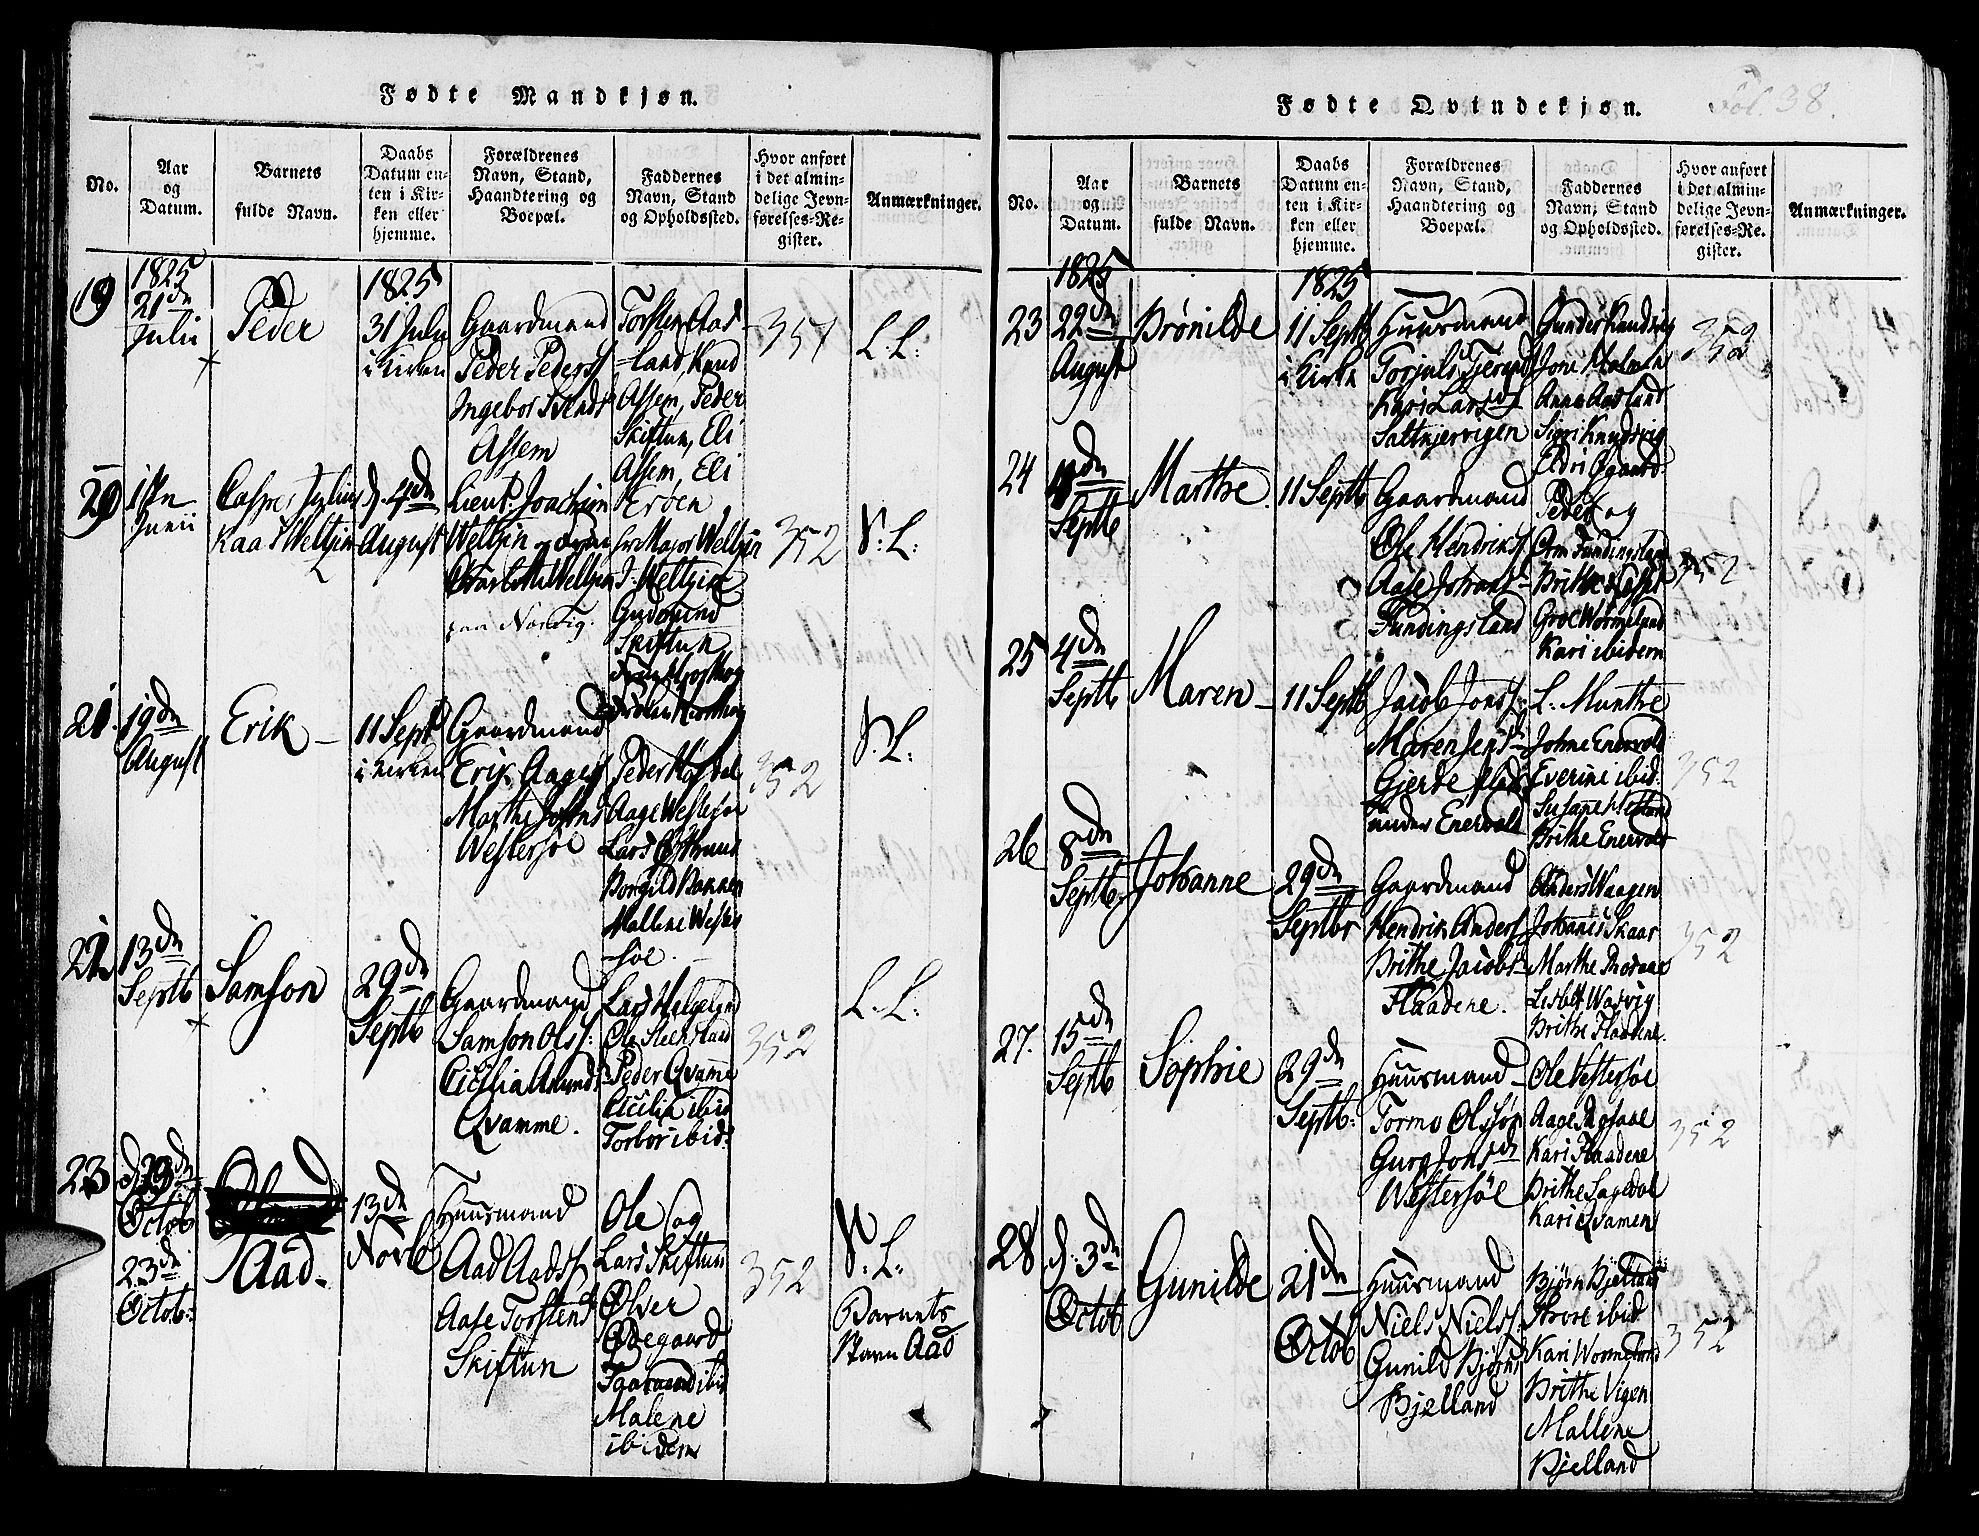 Fødte Mandkjøn.
No.
Aar
og
Datum.
Barnets
fulde Navn.
Daabs
Datum en-
ten i Kir-
ken eller
hjemme.
Forældrenes
Navn, Stand,
Haandtering og
Boepæl.
Faddernes
Navn, Stand
og Opholdssted.
Hvor anført
i det almin-
delige Jevn-
førelses-Re-
gister.
Anmærkninger.
19
1825
21de
Julii
Peder
1825
31 Julii
i Kirken
Gaardmand
Peder Peders
Ingebor Svends
Assem
Torsten Aas-
=land, Knud
Assem, Peder
Skiftun, Eli
Assem, Eli
351
L. L:
20
1ste
Junii
Casper Julius
Kaas Weltzin
d. 4de
August
Lieut. Joachim
Weltzin og
paa Nordtig.
Major Weltzin
J. Weltzin
Gudmund
Skiftun
352
V: L:
21.
19de
August
Erik
11 Sept
i Kirken
Gaardmand
Erik Aages
Marthe Johns
Westersøe
Peder Høidal
Aage Westersøe
Lars Østraus
Borgild Bakken
Mallene Wester
-søe.
352
V. L:
22
13de
Septb
Samson
29de
Septb
Gaardmand
Samson Olss:
Cicilia Amunds
Qvamme.
Lars Helgeland
Ole
Peder Qvame
Cicilia ibid
Torbor ibid:
352
L. L:
23
d. 29de
Octob
23de
Octob:
Aad.
13de
Novb
Huusmand
Aad Aads
Aase Torstens
Skiftun
Ole og
Lars Skiftun
Olver
Ødegaard
ibid
Malene
ibidem
352
V. L:
Barnets
Navn Aad
Fødte Qvindekjøn.
Fol. 38.
No.
Aar
og
Datum.
Barnets
fulde Navn.
Daabs
Datum en-
ten i Kir-
ken eller
hjemme.
Forældrenes
Navn, Stand,
Haandtering og
Boepæl.
Faddernes
Navn, Stand
og Opholdssted.
Hvor anført
i det almin-
delige Jevn-
førelses-Re-
gister.
Anmærkninger.
23
1825
22de
August
Brønilde
1825
11 Septb
i Kirke
Huusmand
Torjuls Tjerands
Kari Larsd
Saltnjervigen
Gunder Knudsvig
Joni Malmin
Anna Aasland
Siri Knudsvig
Eldri Øgaard
352
24
4de
Septb
Marthe
11 Septb
Gaardmand
Ole Hendriks
Aase Johans
Fundingsland
Peder og
Orm Fundingsland
Brithe
Groe Wormeland
Kari ibidem
352
25
4de
Septb
Maren
11 Septb
Jacob Jons
Maren Jens
Gjerde plads
under Enervold
L. Munthe
Johne Enervold
Everine ibid.
Susane
Brithe Enervold
352
26
8de
Septb:
Johanne
29de
Septbr
Gaardmand
Hendrik Anders
Brithe Jacobs
Flaadene.
Anders Waagen
Johanes Skaar
Marthe
Lisbeth Wasvig
Brithe Flaadene.
352
27.
15de
Septb
Sophie
29de
Septb:
Huusmand
Tormo Olssøn
Guro Jons d
Westersøe
Ole Vestersøe
Aage
Kari Flaadene
Brithe Sagedal
Kari Qvamen
352
28
d: 3de
Octob
Gunilde
21de
Octob
Huusmand
Niels Niels
Gunild Bjørns
Bjelland
Bjørn Bjelland
Thore ibid
Kari Wormeland
Brithe Vigen
Mallene
Bjelland
352